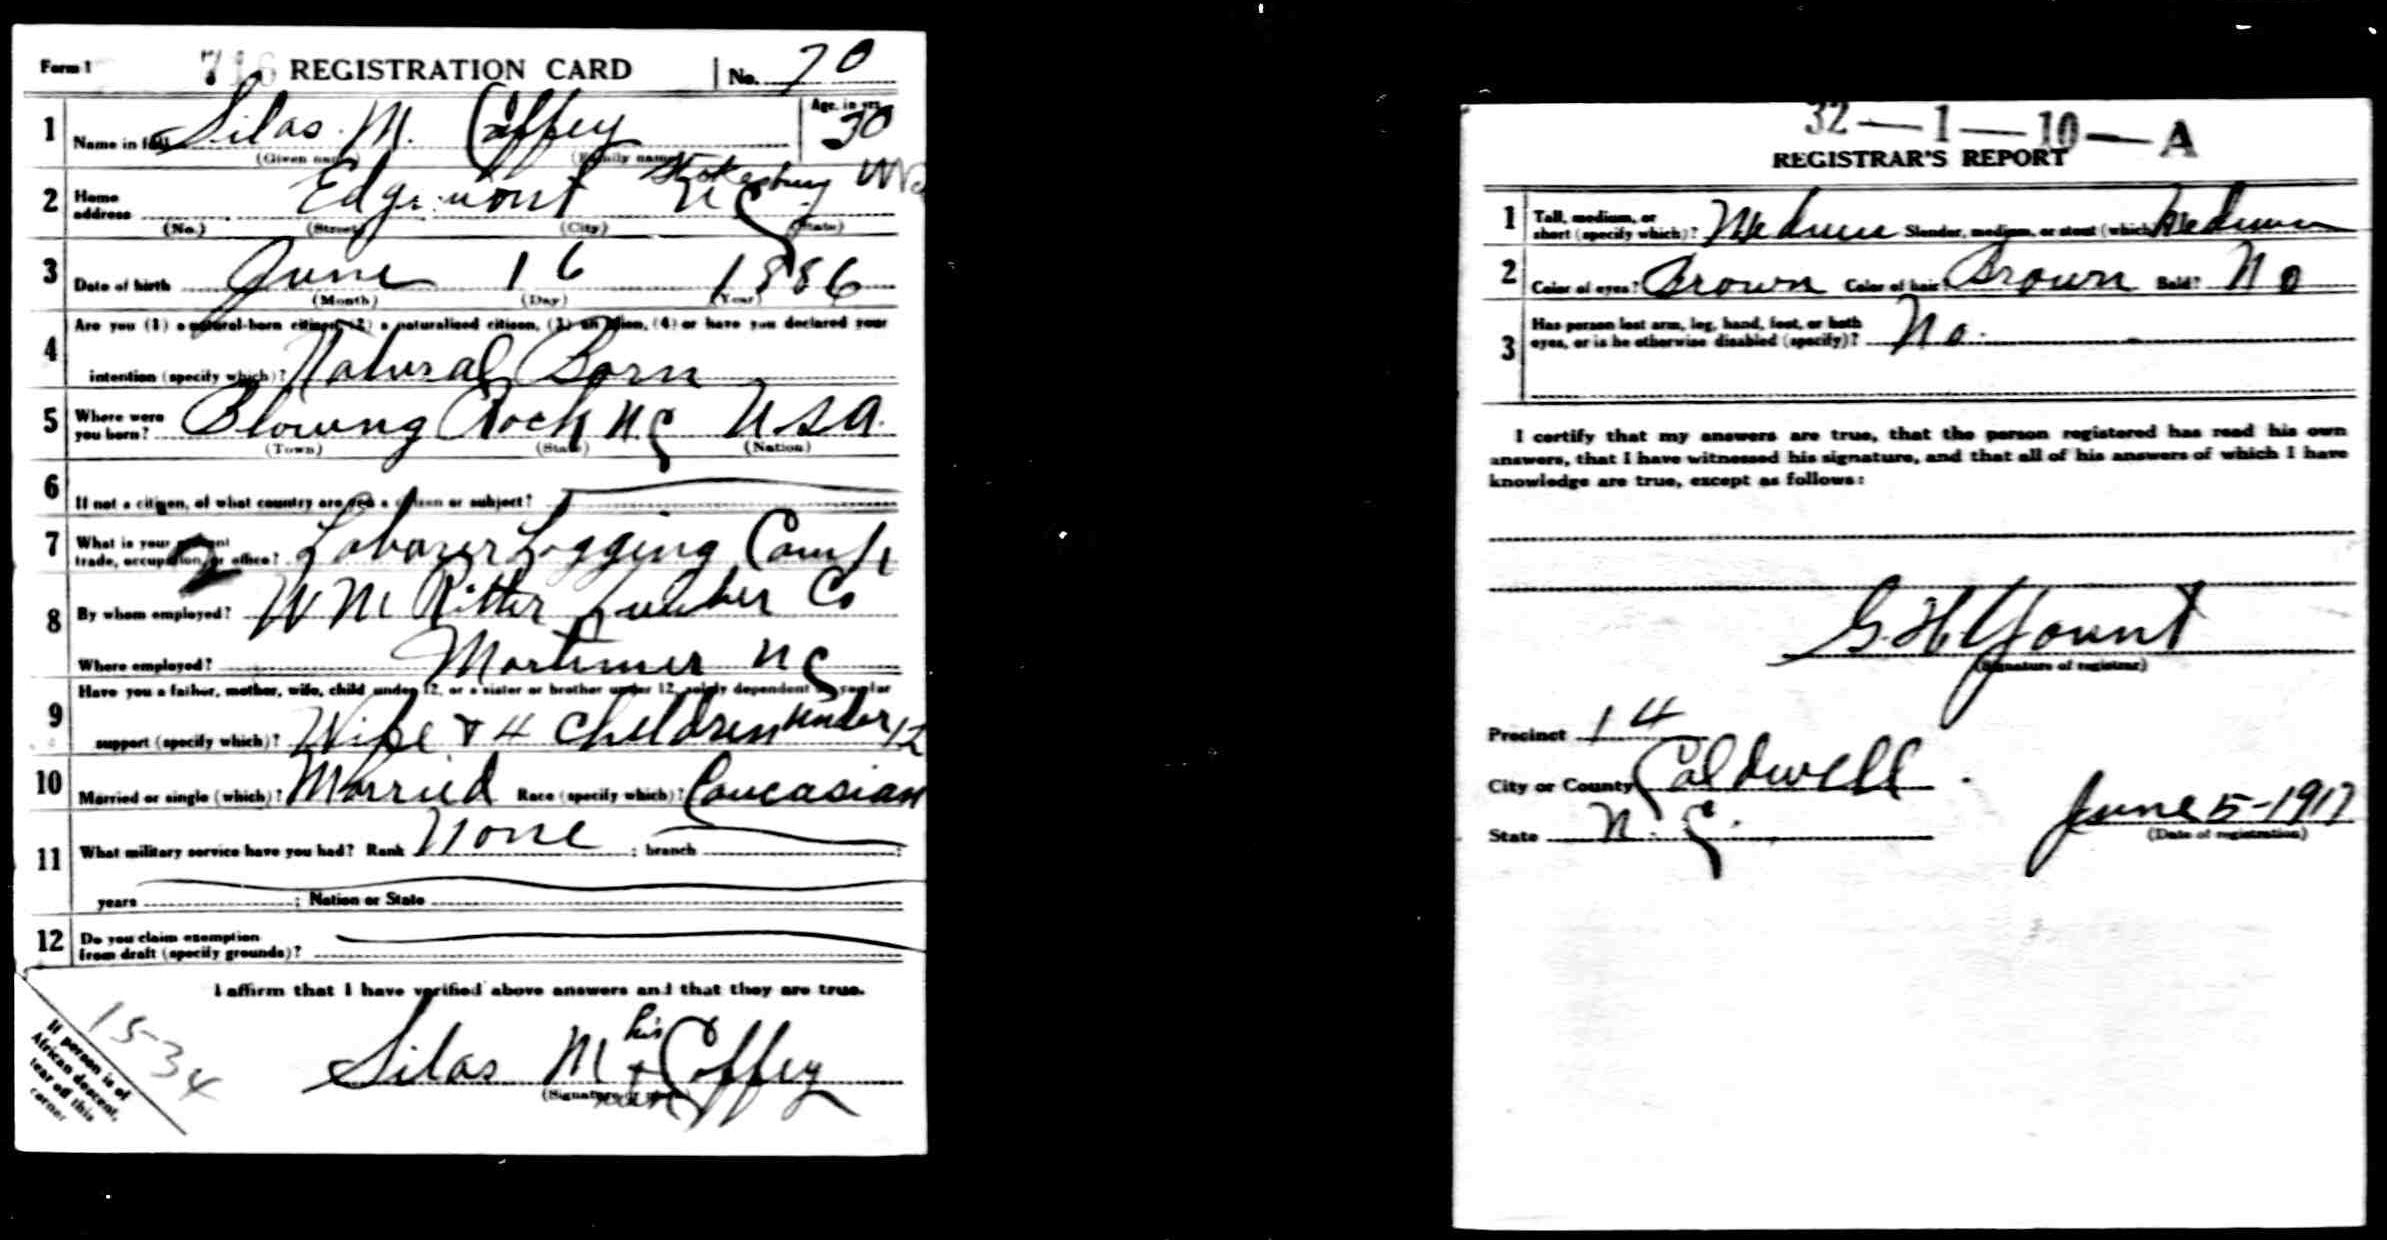 Form 1 716 REGISTRATION CARD No. 70
1 Name in full Silas M. Coffey Age, in yrs. 30
(Given name) (Family name)
2 Home address Edgemont N C
(No.) (Street) (City) (State)
3 Date of birth June 16 1886
(Month) (Day) (Year)
4 Are you (1) a natural-born citizen, (2) a naturalized citizen, (3) an alien, (4) or have you declared your
intention (specify which)? Natural Born
5 Where were you born? Blowing Rock N.C USA.
(Town) (State) (Nation)
6 If not a citizen, of what country are you a citizen or subject?
7 What is your present trade, occupation, or office? 2 Laborer Logging Camp
8 By whom employed? W M Ritter Lumber Co
Where employed? Mortimer N C
9 Have you a father, mother, wife, child under 12, or a sister or brother under 12, solely dependent on you for
support (specify which)? Wife & 4 children under 12
10 Married or single (which)? Married Race (specify which)? Caucasian
11 What military service have you had? Rank None ; branch ;
years ; Nation or State
12 Do you claim exemption from draft (specify grounds)?
I affirm that I have verified above answers and that they are true.
Silas M his + Coffey
(Signature or mark) mark
15-34
If person is of African descent, tear off this corner
32—1—10—A
REGISTRAR'S REPORT
1 Tall, medium, or short (specify which)? Medium Slender, medium, or stout (which)? Medium
2 Color of eyes? Brown Color of hair? Brown Bald? No
3 Has person lost arm, leg, hand, foot, or both eyes, or is he otherwise disabled (specify)? No.
I certify that my answers are true, that the person registered has read his own
answers, that I have witnessed his signature, and that all of his answers of which I have
knowledge are true, except as follows:
G. H. Yount
(Signature of registrar)
Precinct 14
City or County Caldwell.
State N. C. June 5-1917
(Date of registration)